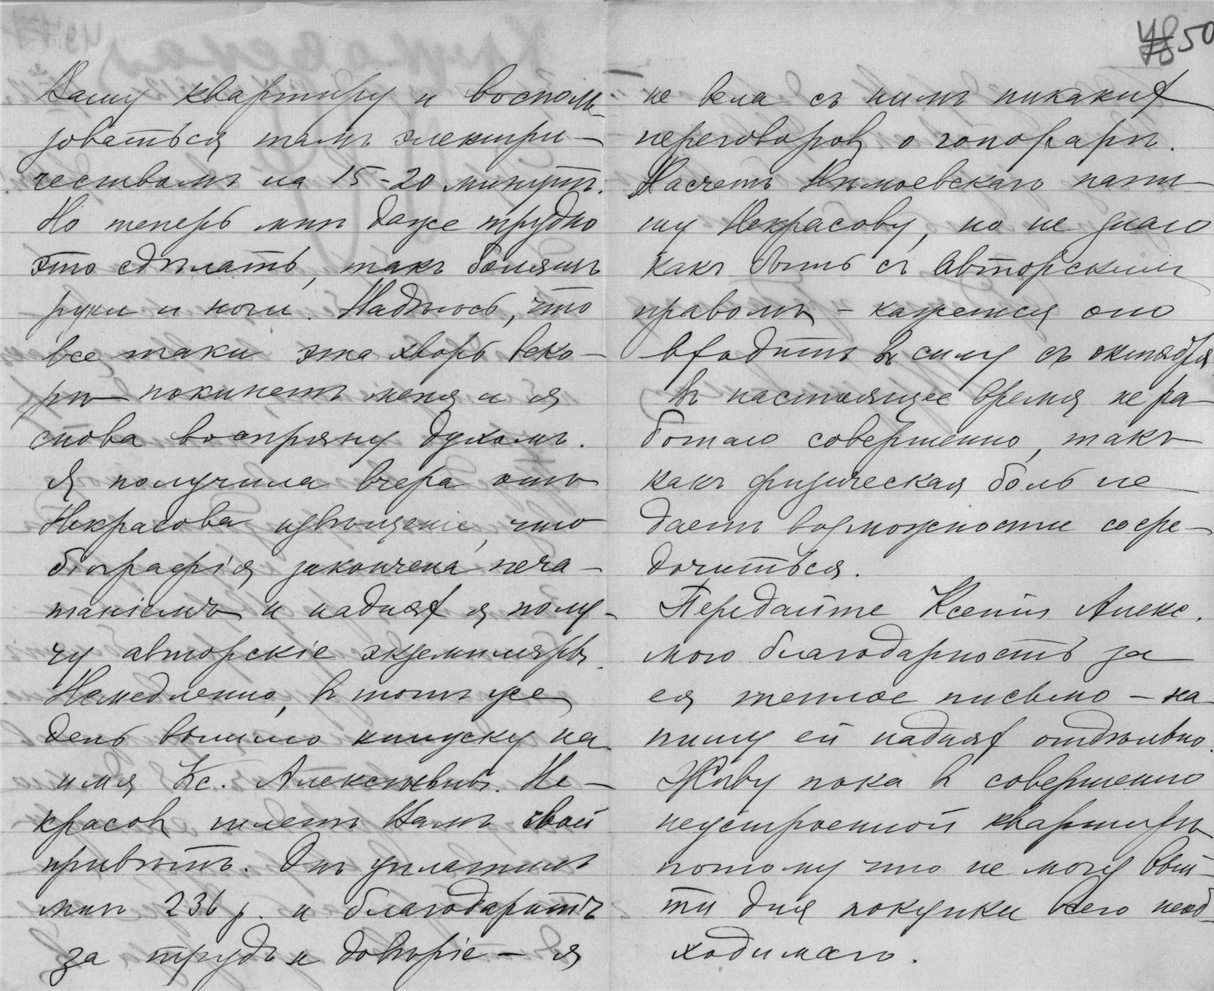 50
Вашу квартиру и восполь-
зоваться тамъ электри-
чествомъ на 15-20 минутъ.
Но теперь мнѣ даже трудно
это сдѣлать, такъ болятъ
руки и ноги. Надѣюсь, что
все таки эта хворь вско-
рѣ покинетъ меня и я
снова воспряну духомъ.
Я получила вчера отъ
Некрасова извѣщеніе, что
біографія закончена печа-
таніемъ и надняхъ я полу-
чу авторскіе экземпляры.
Немедленно, въ тотъ же
день вышлю книжку на
имя Кс. Алексѣевны. Не-
красовъ шлетъ Вамъ свой
привѣтъ. Онъ уплатилъ
мнѣ 236 р. и благодаритъ
за трудъ и довѣріе – я
не вела съ нимъ никакихъ
переговоровъ о гонорарѣ.
Насчетъ Нѣмоевскаго напи-
шу Некрасову, но не знаю
какъ быть съ авторскимъ
правомъ – кажется оно
входитъ въ силу съ октября.
Въ настоящее время не ра-
ботаю совершенно, такъ
какъ физическая боль не
даетъ возможности сосре-
дочиться.
Передайте Ксеніи Алекс.
мою благодарность за
ея теплое письмо – на-
пишу ей надняхъ отдѣльно.
Живу пока въ совершенно
неустроенной квартирѣ
потому что не могу вый-
ти для покупки всего необ-
ходимаго.